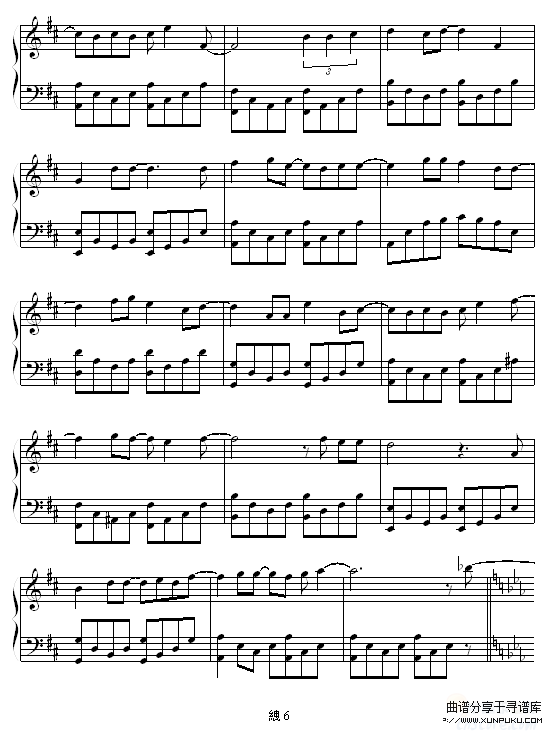 3
絏 6
曲谱分享于寻谱库
WWW.XUNPUKU.COM